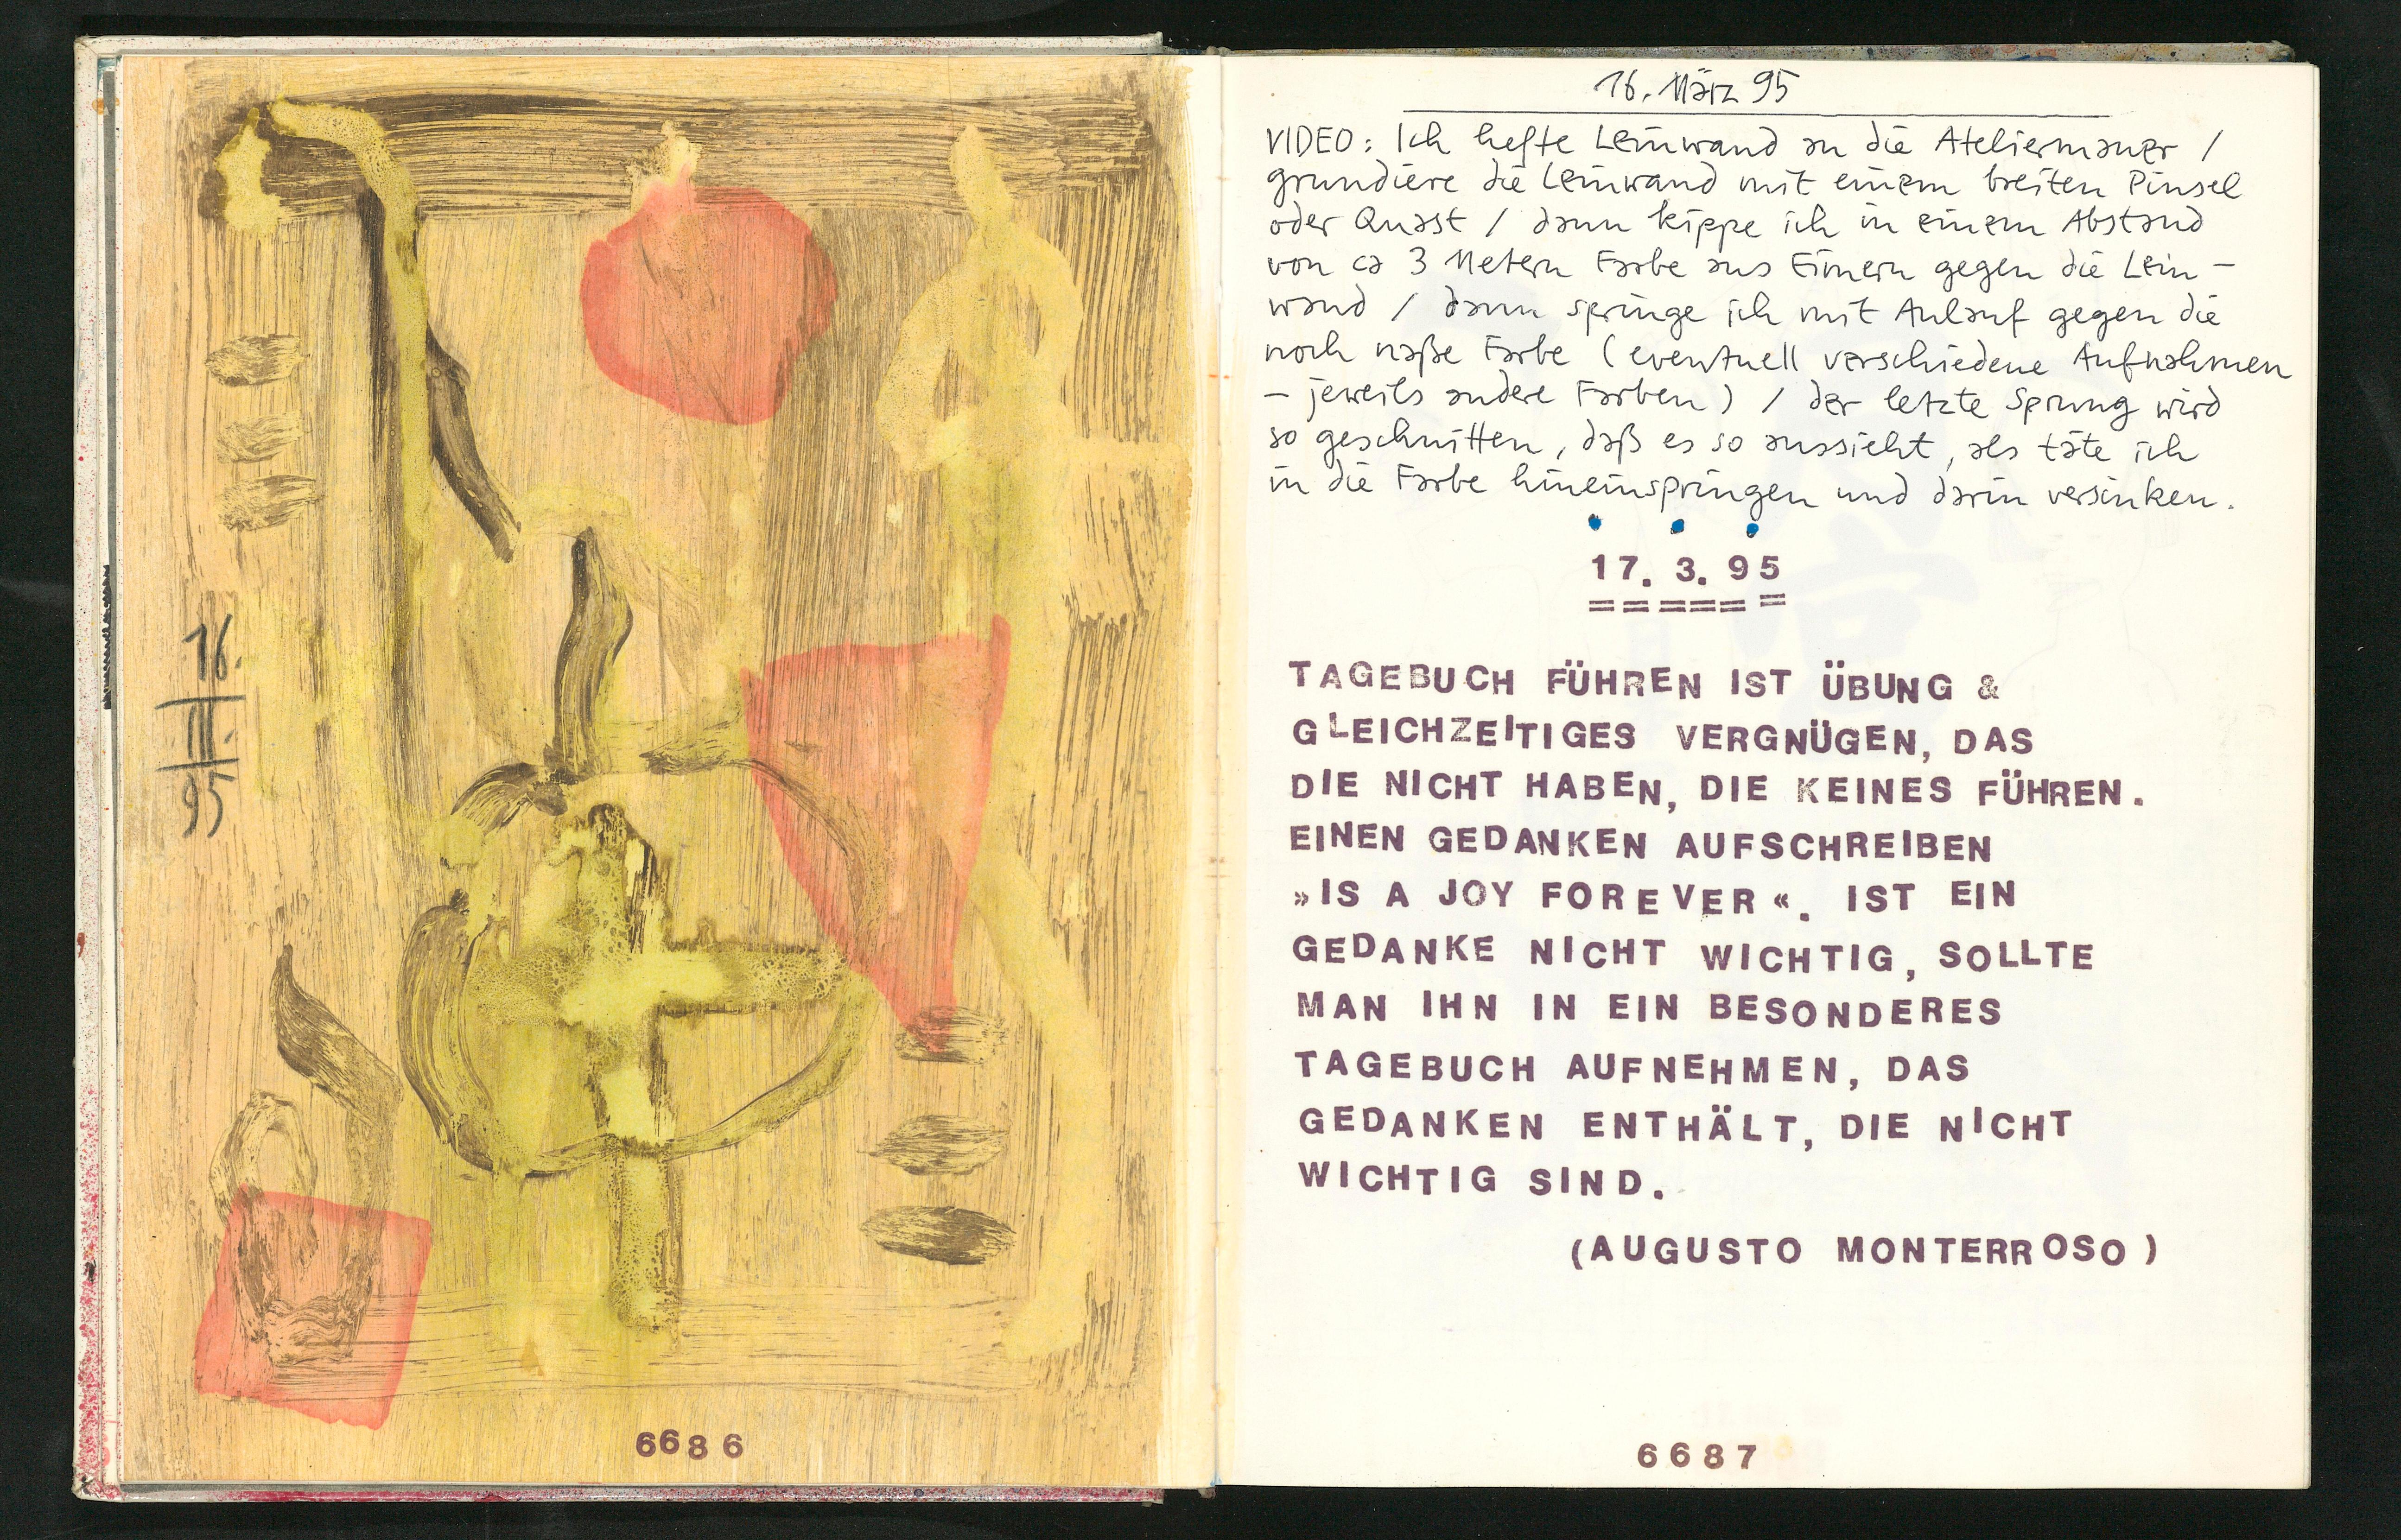 16.
III.
95
6686
16. März 95
VIDEO: Ich hefte Leinwand an die Ateliermauer /
grundiere die Leinwand mit einem breiten Pinsel
oder Quast / dann kippe ich in einem Abstand
von ca 3 Metern Farbe aus Eimern gegen die Lein-
wand / dann springe ich mit Anlauf gegen die
noch naße Farbe (eventuell verschiedene Aufnahmen
- jeweils andere Farben) / der letzte Sprung wird
so geschnitten, daß es so aussieht, als täte ich
in die Farbe hineinspringen und darin versinken.
17. 3. 95
TAGEBUCH FÜHREN IST ÜBUNG &
GLEICHZEITIGES VERGNÜGEN, DAS
DIE NICHT HABEN, DIE KEINES FÜHREN.
EINEN GEDANKEN AUFSCHREIBEN
»IS A JOY FOREVER«. IST EIN
GEDANKE NICHT WICHTIG, SOLLTE
MAN IHN IN EIN BESONDERES
TAGEBUCH AUFNEHMEN, DAS
GEDANKEN ENTHÄLT, DIE NICHT
WICHTIG SIND.
(AUGUSTO MONTERROSO)
6687